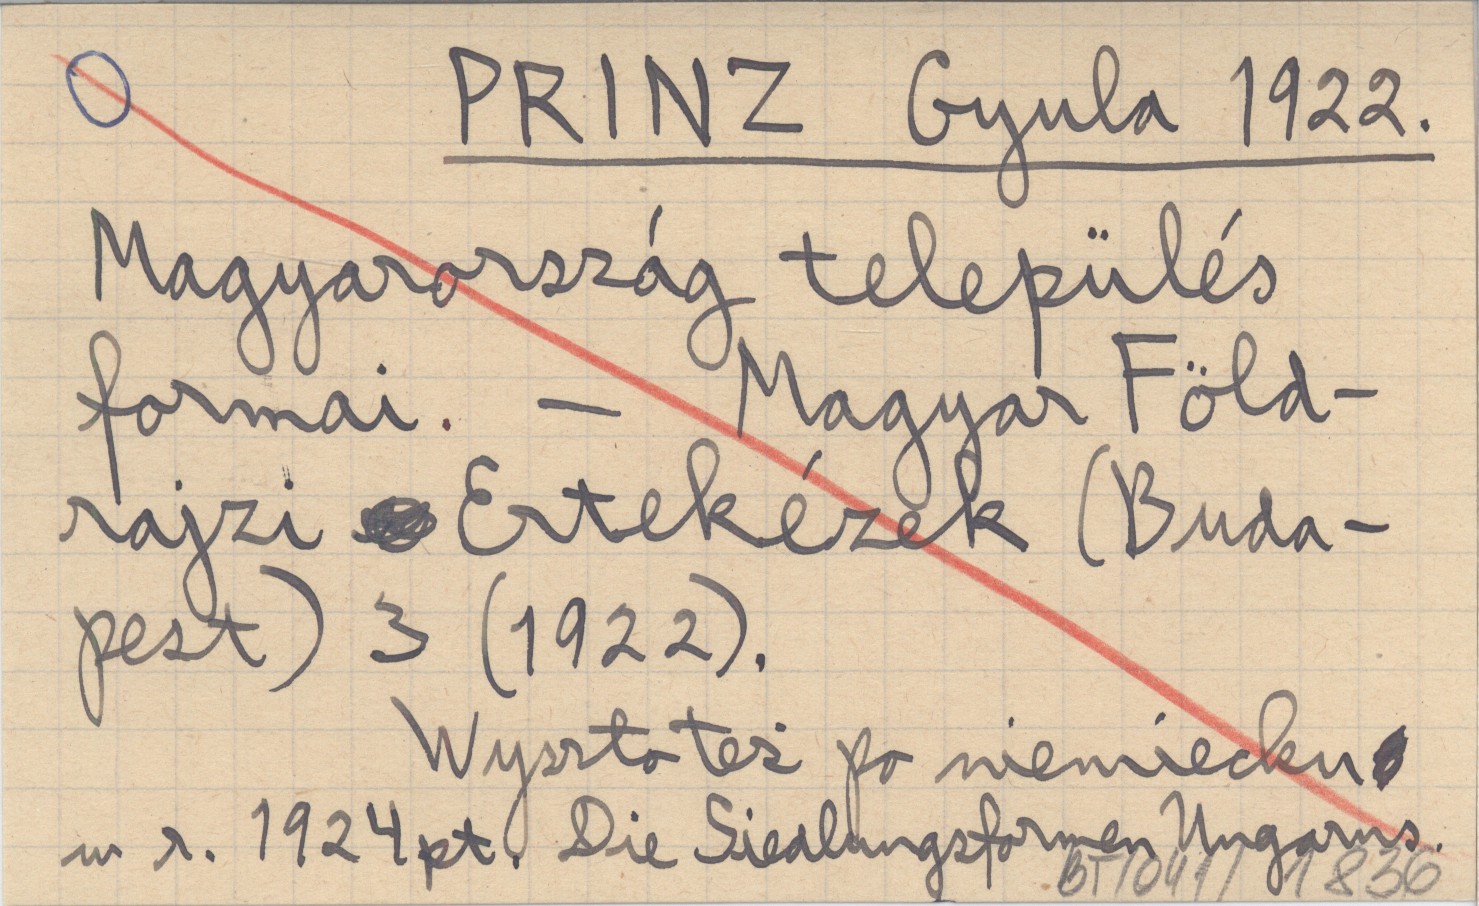 PRINZ Gyula 1922.
Magyarország település
formai. - Magyar Föld-
rajzi Ertekézek (Buda-
pest) 3 (1922).
Wyszło też po niemiecku
w r. 1924 pt. Die Siedlungsformen Ungarns.
BT/041/1836